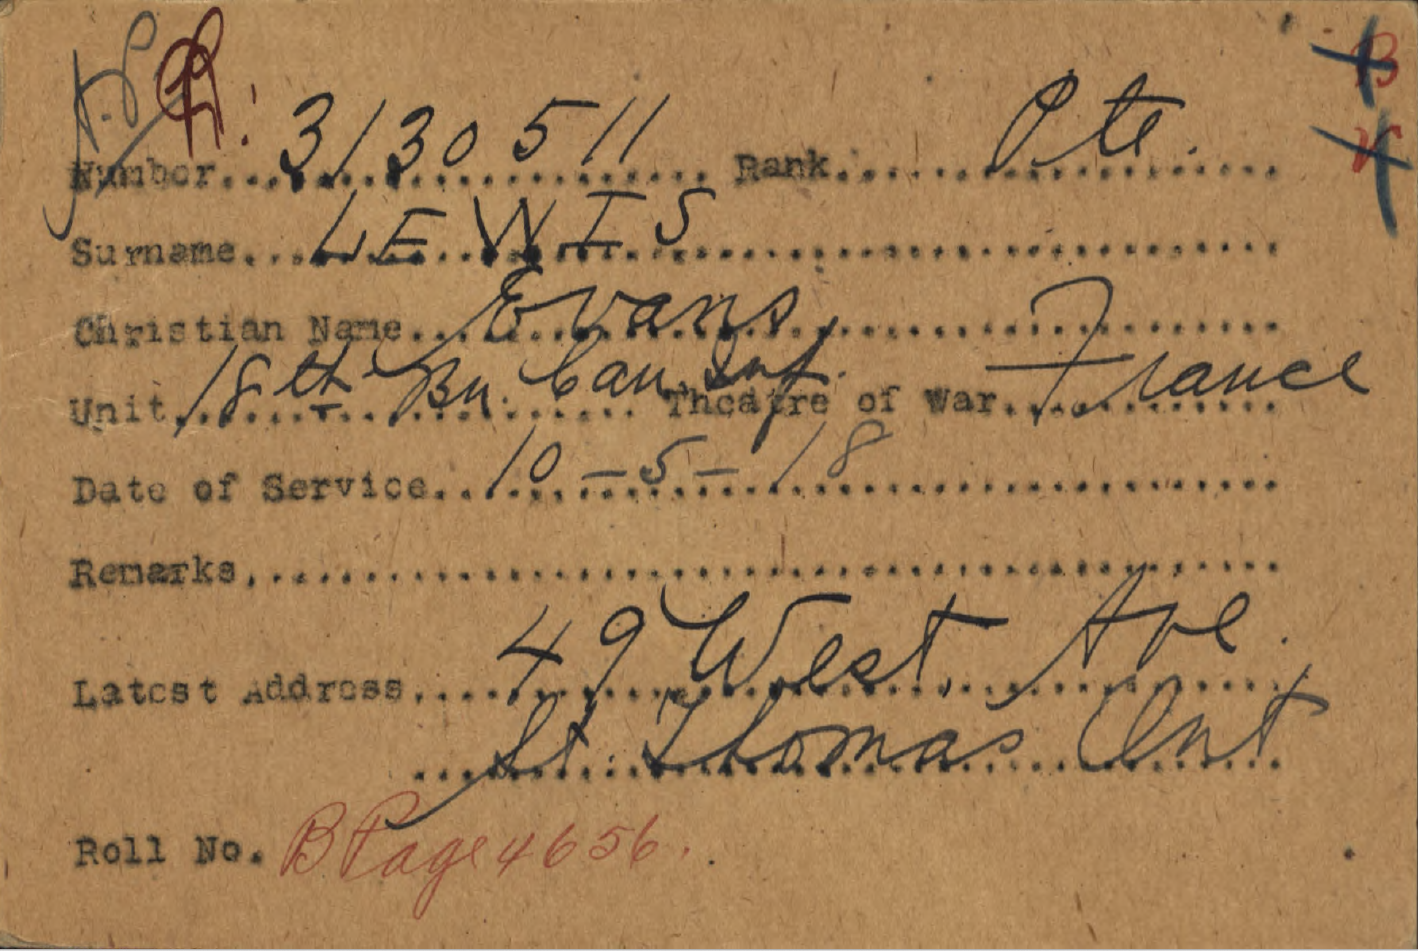 B
V
Number 3130511 Rank Pte.
Surname LEWIS
Christian Name Evans
Unit 18th Bn Can Inf. Theatre of War France
Date of Service 10-5-18
Remarks
Latest Address 49 West Ave.
St. Thomas Ont
Roll No. B Page 4656.